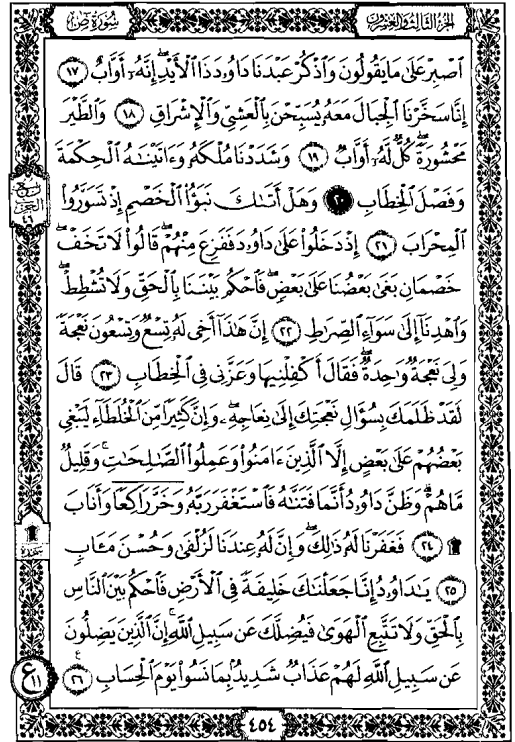 الجزء الثالث والعشرون
سُورَةُ صٓ
ٱصۡبِرۡ عَلَىٰ مَا يَقُولُونَ وَٱذۡكُرۡ عَبۡدَنَا دَاوُۥدَ ذَا ٱلۡأَيۡدِۖ إِنَّهُۥٓ أَوَّابٌ ١٧
إِنَّا سَخَّرۡنَا ٱلۡجِبَالَ مَعَهُۥ يُسَبِّحۡنَ بِٱلۡعَشِيِّ وَٱلۡإِشۡرَاقِ ١٨ وَٱلطَّيۡرَ
مَحۡشُورَةٗۖ كُلّٞ لَّهُۥٓ أَوَّابٞ ١٩ وَشَدَدۡنَا مُلۡكَهُۥ وَءَاتَيۡنَٰهُ ٱلۡحِكۡمَةَ
وَفَصۡلَ ٱلۡخِطَابِ ٢٠ وَهَلۡ أَتَىٰكَ نَبَؤُاْ ٱلۡخَصۡمِ إِذۡ تَسَوَّرُواْ
ٱلۡمِحۡرَابَ ٢١ إِذۡ دَخَلُواْ عَلَىٰ دَاوُۥدَ فَفَزِعَ مِنۡهُمۡۖ قَالُواْ لَا تَخَفۡۖ
خَصۡمَانِ بَغَىٰ بَعۡضُنَا عَلَىٰ بَعۡضٖ فَٱحۡكُم بَيۡنَنَا بِٱلۡحَقِّ وَلَا تُشۡطِطۡ
وَٱهۡدِنَآ إِلَىٰ سَوَآءِ ٱلصِّرَٰطِ ٢٢ إِنَّ هَٰذَآ أَخِي لَهُۥ تِسۡعٞ وَتِسۡعُونَ نَعۡجَةٗ
وَلِيَ نَعۡجَةٞ وَٰحِدَةٞ فَقَالَ أَكۡفِلۡنِيهَا وَعَزَّنِي فِي ٱلۡخِطَابِ ٢٣ قَالَ
لَقَدۡ ظَلَمَكَ بِسُؤَالِ نَعۡجَتِكَ إِلَىٰ نِعَاجِهِۦۖ وَإِنَّ كَثِيرٗا مِّنَ ٱلۡخُلَطَآءِ لَيَبۡغِي
بَعۡضُهُمۡ عَلَىٰ بَعۡضٍ إِلَّا ٱلَّذِينَ ءَامَنُواْ وَعَمِلُواْ ٱلصَّٰلِحَٰتِ وَقَلِيلٞ
مَّا هُمۡۗ وَظَنَّ دَاوُۥدُ أَنَّمَا فَتَنَّٰهُ فَٱسۡتَغۡفَرَ رَبَّهُۥ وَخَرَّۤ رَاكِعٗاۤ وَأَنَابَ
۩ ٢٤ فَغَفَرۡنَا لَهُۥ ذَٰلِكَۖ وَإِنَّ لَهُۥ عِندَنَا لَزُلۡفَىٰ وَحُسۡنَ مَـَٔابٖ
٢٥ يَٰدَاوُۥدُ إِنَّا جَعَلۡنَٰكَ خَلِيفَةٗ فِي ٱلۡأَرۡضِ فَٱحۡكُم بَيۡنَ ٱلنَّاسِ
بِٱلۡحَقِّ وَلَا تَتَّبِعِ ٱلۡهَوَىٰ فَيُضِلَّكَ عَن سَبِيلِ ٱللَّهِۚ إِنَّ ٱلَّذِينَ يَضِلُّونَ
عَن سَبِيلِ ٱللَّهِ لَهُمۡ عَذَابٞ شَدِيدُۢ بِمَا نَسُواْ يَوۡمَ ٱلۡحِسَابِ ٢٦
ربع
الحزب
٤٦
سجدة
ع
١١
٤٥٤